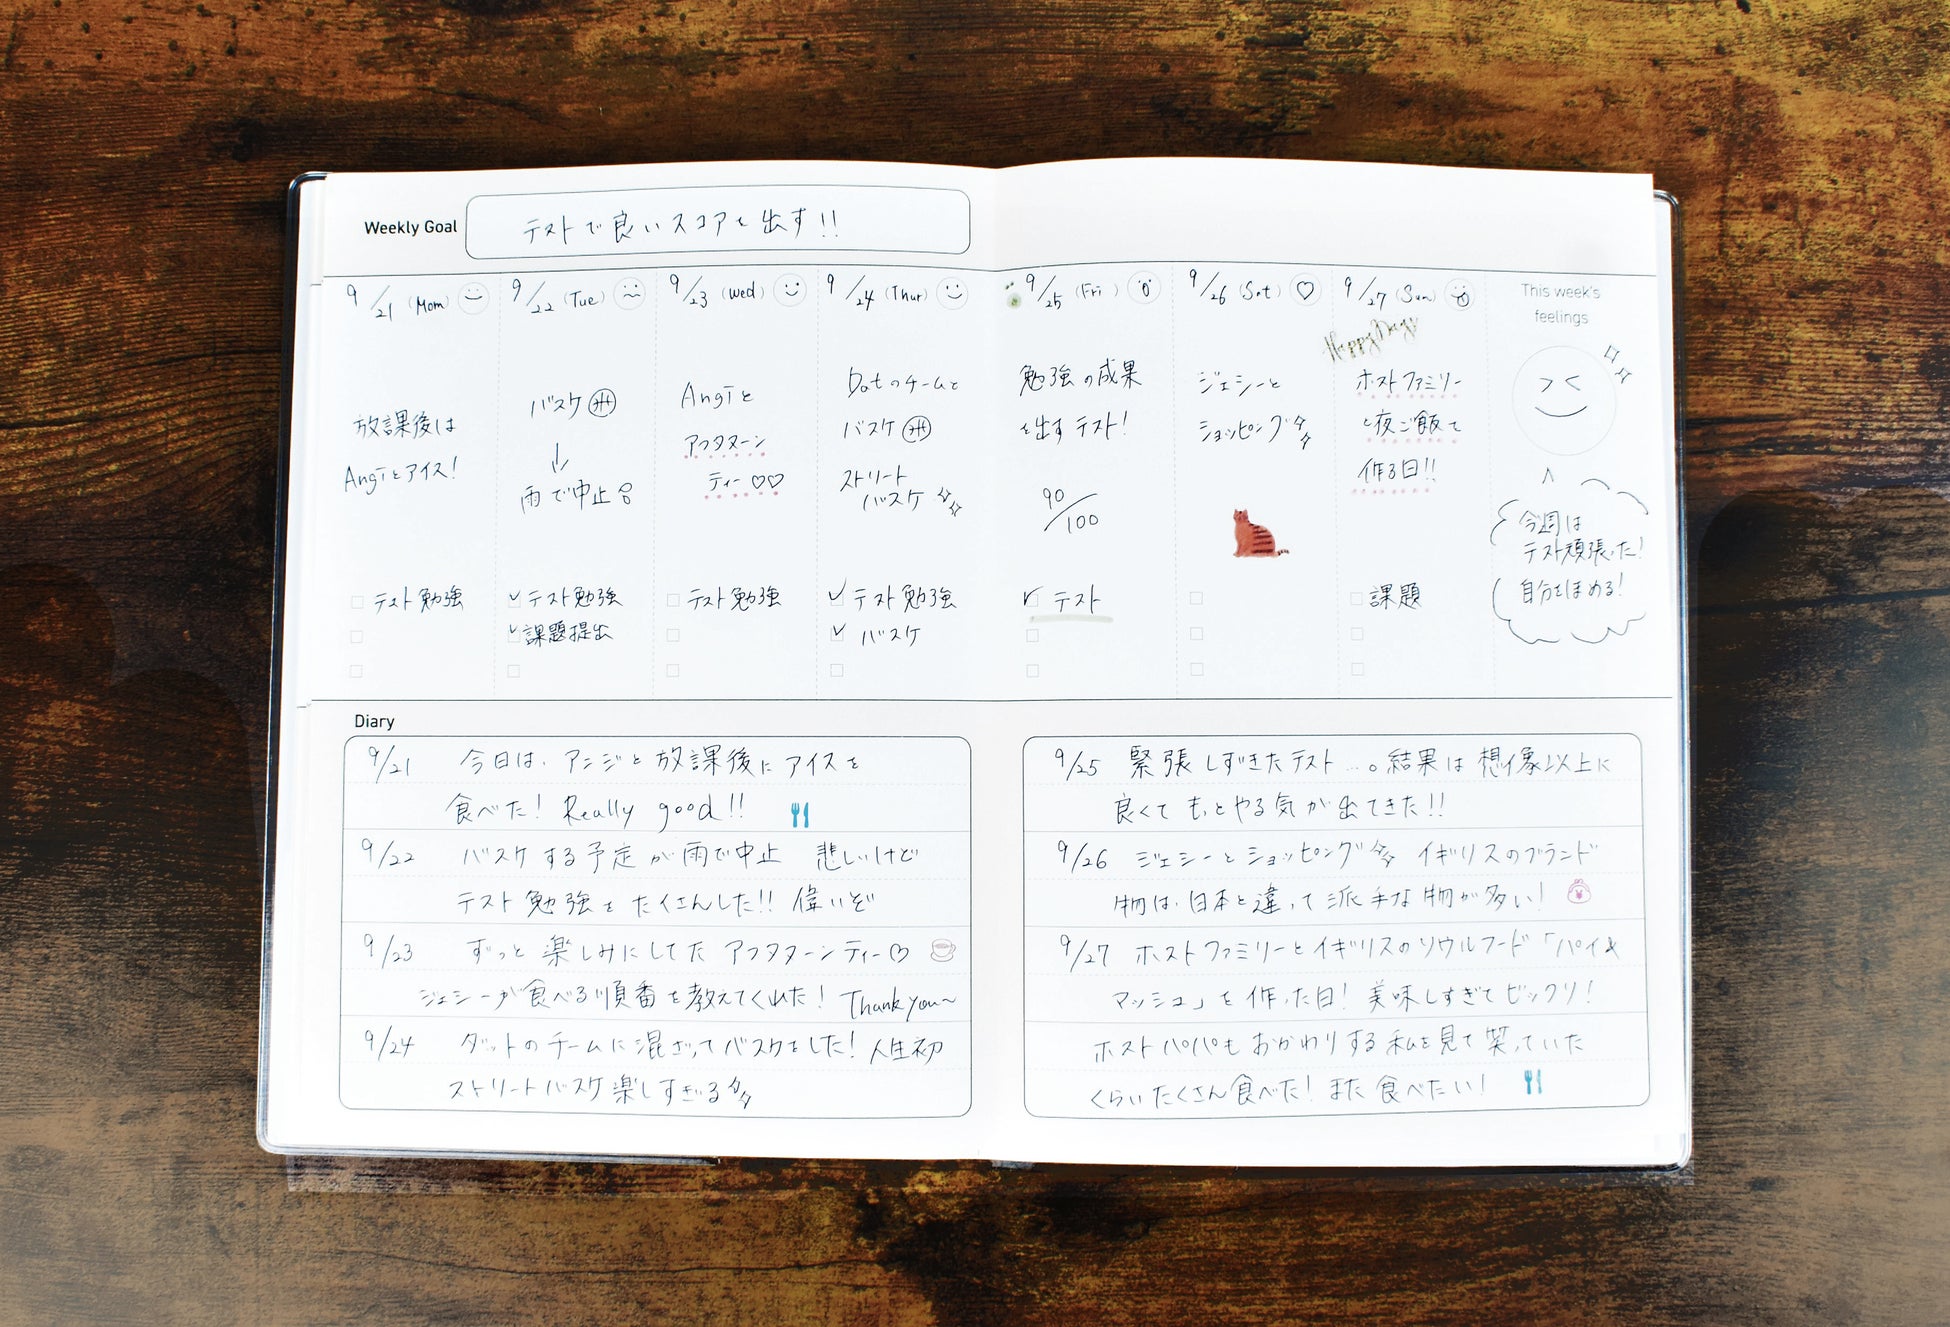 Weekly Goal
テストで良いスコアを出す!!
9/21 (Mom)
放課後は
Angiとアイス!
テスト勉強
9/22 (Tue)
バスケ
↓
雨で中止
テスト勉強
課題提出
9/23 (Wed)
Angiと
アフタヌーン
ティー♡♡
テスト勉強
9/24 (Thur)
Datのチームと
バスケ
ストリート
バスケ
テスト勉強
バスケ
9/25 (Fri)
勉強の成果
を出すテスト!
90/100
テスト
9/26 (Sat)
ジェシーと
ショッピング
9/27 (Sun)
Happy Days
ホストファミリー
と夜ご飯を
作る日!!
課題
This week's
feelings
今週は
テスト頑張った!
自分をほめる!
Diary
9/21 今日は、アンジと放課後にアイスを
食べた! Really good!!
9/22 バスケする予定が雨で中止 悲しいけど
テスト勉強をたくさんした!! 偉いぞ
9/23 ずっと楽しみにしてたアフタヌーンティー♡
ジェシーが食べる順番を教えてくれた! Thank you~
9/24 ダットのチームに混ざってバスケをした! 人生初
ストリートバスケ楽しすぎる
9/25 緊張しすぎたテスト...。結果は想像以上に
良くてもっとやる気が出てきた!!
9/26 ジェシーとショッピング イギリスのブランド
物は、日本と違って派手な物が多い!
9/27 ホストファミリーとイギリスのソウルフード「パイ&
マッシュ」を作った日! 美味しすぎてビックリ!
ホストパパもおかわりする私を見て笑っていた
くらいたくさん食べた! また食べたい!